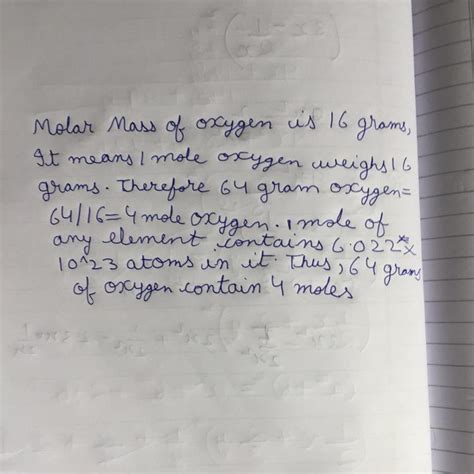 Molar Mass of oxygen is 16 grams,
It means 1 mole oxygen weighs 16
grams. Therefore 64 gram oxygen=
64/16=4 mole oxygen. 1 mole of
any element contains 6.022x
10^23 atoms in it. Thus, 64 grams
of oxygen contain 4 moles